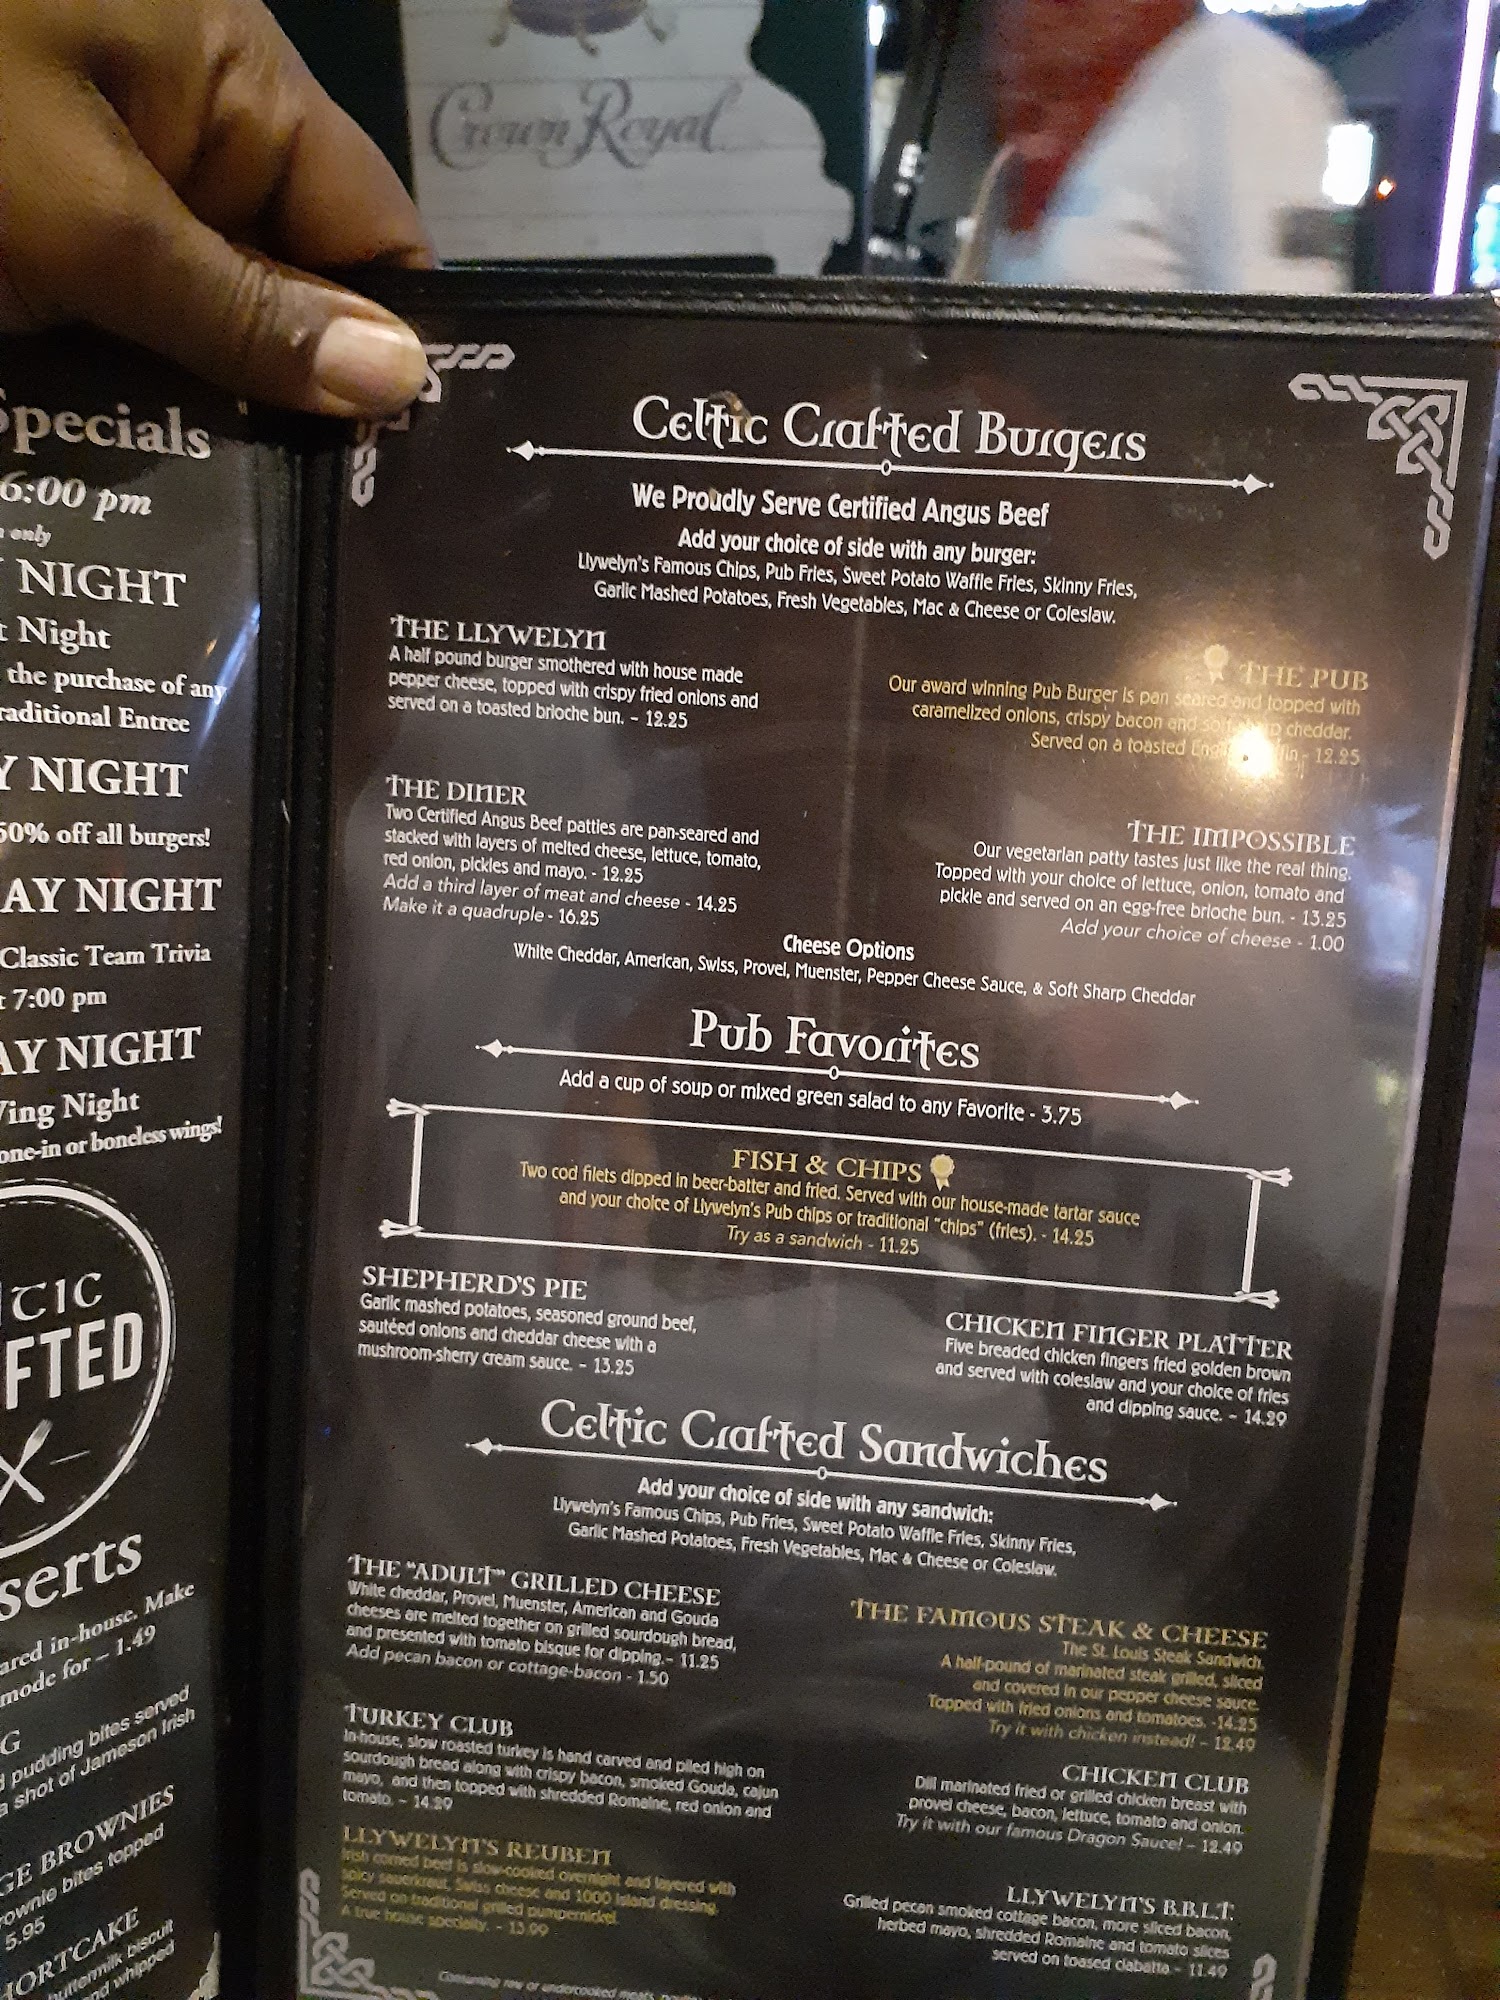 Crown Royal
Specials
6:00 pm
only
NIGHT
Night
the purchase of any
Traditional Entree
Y NIGHT
50% off all burgers!
AY NIGHT
Classic Team Trivia
7:00 pm
AY NIGHT
Wing Night
one-in or boneless wings!
TIC
FTED
serts
ared in-house. Make
mode for – 1.49
G
pudding bites served
a shot of Jameson Irish
GE BROWNIES
rownie bites topped
5.95
HORTCAKE
buttermilk biscuit
and whipped
Celtic Crafted Burgers
We Proudly Serve Certified Angus Beef
Add your choice of side with any burger:
Llywelyn's Famous Chips, Pub Fries, Sweet Potato Waffle Fries, Skinny Fries,
Garlic Mashed Potatoes, Fresh Vegetables, Mac & Cheese or Coleslaw.
THE LLYWELYN
A half pound burger smothered with house made
pepper cheese, topped with crispy fried onions and
served on a toasted brioche bun. – 12.25
THE PUB
Our award winning Pub Burger is pan seared and topped with
caramelized onions, crispy bacon and soft sharp cheddar.
Served on a toasted - 12.25
THE DINER
Two Certified Angus Beef patties are pan-seared and
stacked with layers of melted cheese, lettuce, tomato,
red onion, pickles and mayo. - 12.25
Add a third layer of meat and cheese - 14.25
Make it a quadruple - 16.25
THE IMPOSSIBLE
Our vegetarian patty tastes just like the real thing.
Topped with your choice of lettuce, onion, tomato and
pickle and served on an egg-free brioche bun. - 13.25
Add your choice of cheese - 1.00
Cheese Options
White Cheddar, American, Swiss, Provel, Muenster, Pepper Cheese Sauce, & Soft Sharp Cheddar
Pub Favorites
Add a cup of soup or mixed green salad to any Favorite - 3.75
FISH & CHIPS
Two cod filets dipped in beer-batter and fried. Served with our house-made tartar sauce
and your choice of Llywelyn's Pub chips or traditional "chips" (fries). - 14.25
Try as a sandwich - 11.25
SHEPHERD'S PIE
Garlic mashed potatoes, seasoned ground beef,
sautéed onions and cheddar cheese with a
mushroom-sherry cream sauce. – 13.25
CHICKEN FINGER PLATTER
Five breaded chicken fingers fried golden brown
and served with coleslaw and your choice of fries
and dipping sauce. – 14.29
Celtic Crafted Sandwiches
Add your choice of side with any sandwich:
Llywelyn's Famous Chips, Pub Fries, Sweet Potato Waffle Fries, Skinny Fries,
Garlic Mashed Potatoes, Fresh Vegetables, Mac & Cheese or Coleslaw.
THE "ADULT" GRILLED CHEESE
White cheddar, Provel, Muenster, American and Gouda
cheeses are melted together on grilled sourdough bread,
and presented with tomato bisque for dipping.– 11.25
Add pecan bacon or cottage-bacon - 1.50
THE FAMOUS STEAK & CHEESE
The St. Louis Steak Sandwich.
A half-pound of marinated steak grilled, sliced
and covered in our pepper cheese sauce.
Topped with fried onions and tomatoes. -14.25
Try it with chicken instead! – 12.49
TURKEY CLUB
In-house, slow roasted turkey is hand carved and piled high on
sourdough bread along with crispy bacon, smoked Gouda, cajun
mayo, and then topped with shredded Romaine, red onion and
tomato. – 14.29
CHICKEN CLUB
Dill marinated fried or grilled chicken breast with
provel cheese, bacon, lettuce, tomato and onion.
Try it with our famous Dragon Sauce! – 12.49
LLYWELYN'S REUBEN
Irish corned beef is slow-cooked overnight and layered with
spicy sauerkraut, Swiss cheese and 1000 Island dressing.
Served on traditional grilled pumpernickel.
A true house specialty. – 13.99
LLYWELYN'S B.B.L.T.
Grilled pecan smoked cottage bacon, more sliced bacon,
herbed mayo, shredded Romaine and tomato slices
served on toased ciabatta - 11.49
Consuming raw or undercooked meats,